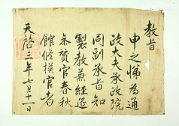 教旨
申之悌為通
政大夫承政院
同副承旨知
製教兼經筵
參贊官春秋
館修撰官者
天啓三年七月十二日